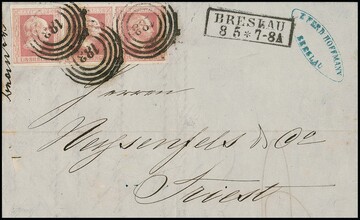 182
182
182
BRESLAU
8 5 * 7-8A
FERD HOFFMANN
BRESLAU
Herren
Neysenfels & Co
Triest